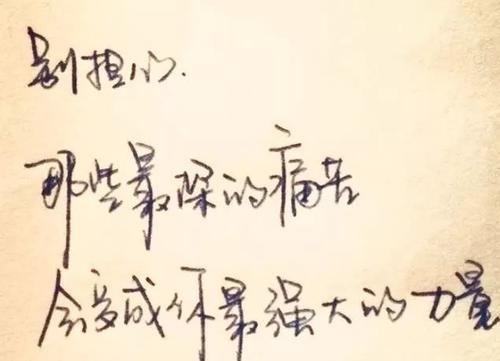 别担心.
那些最深的痛苦
会变成你最强大的力量